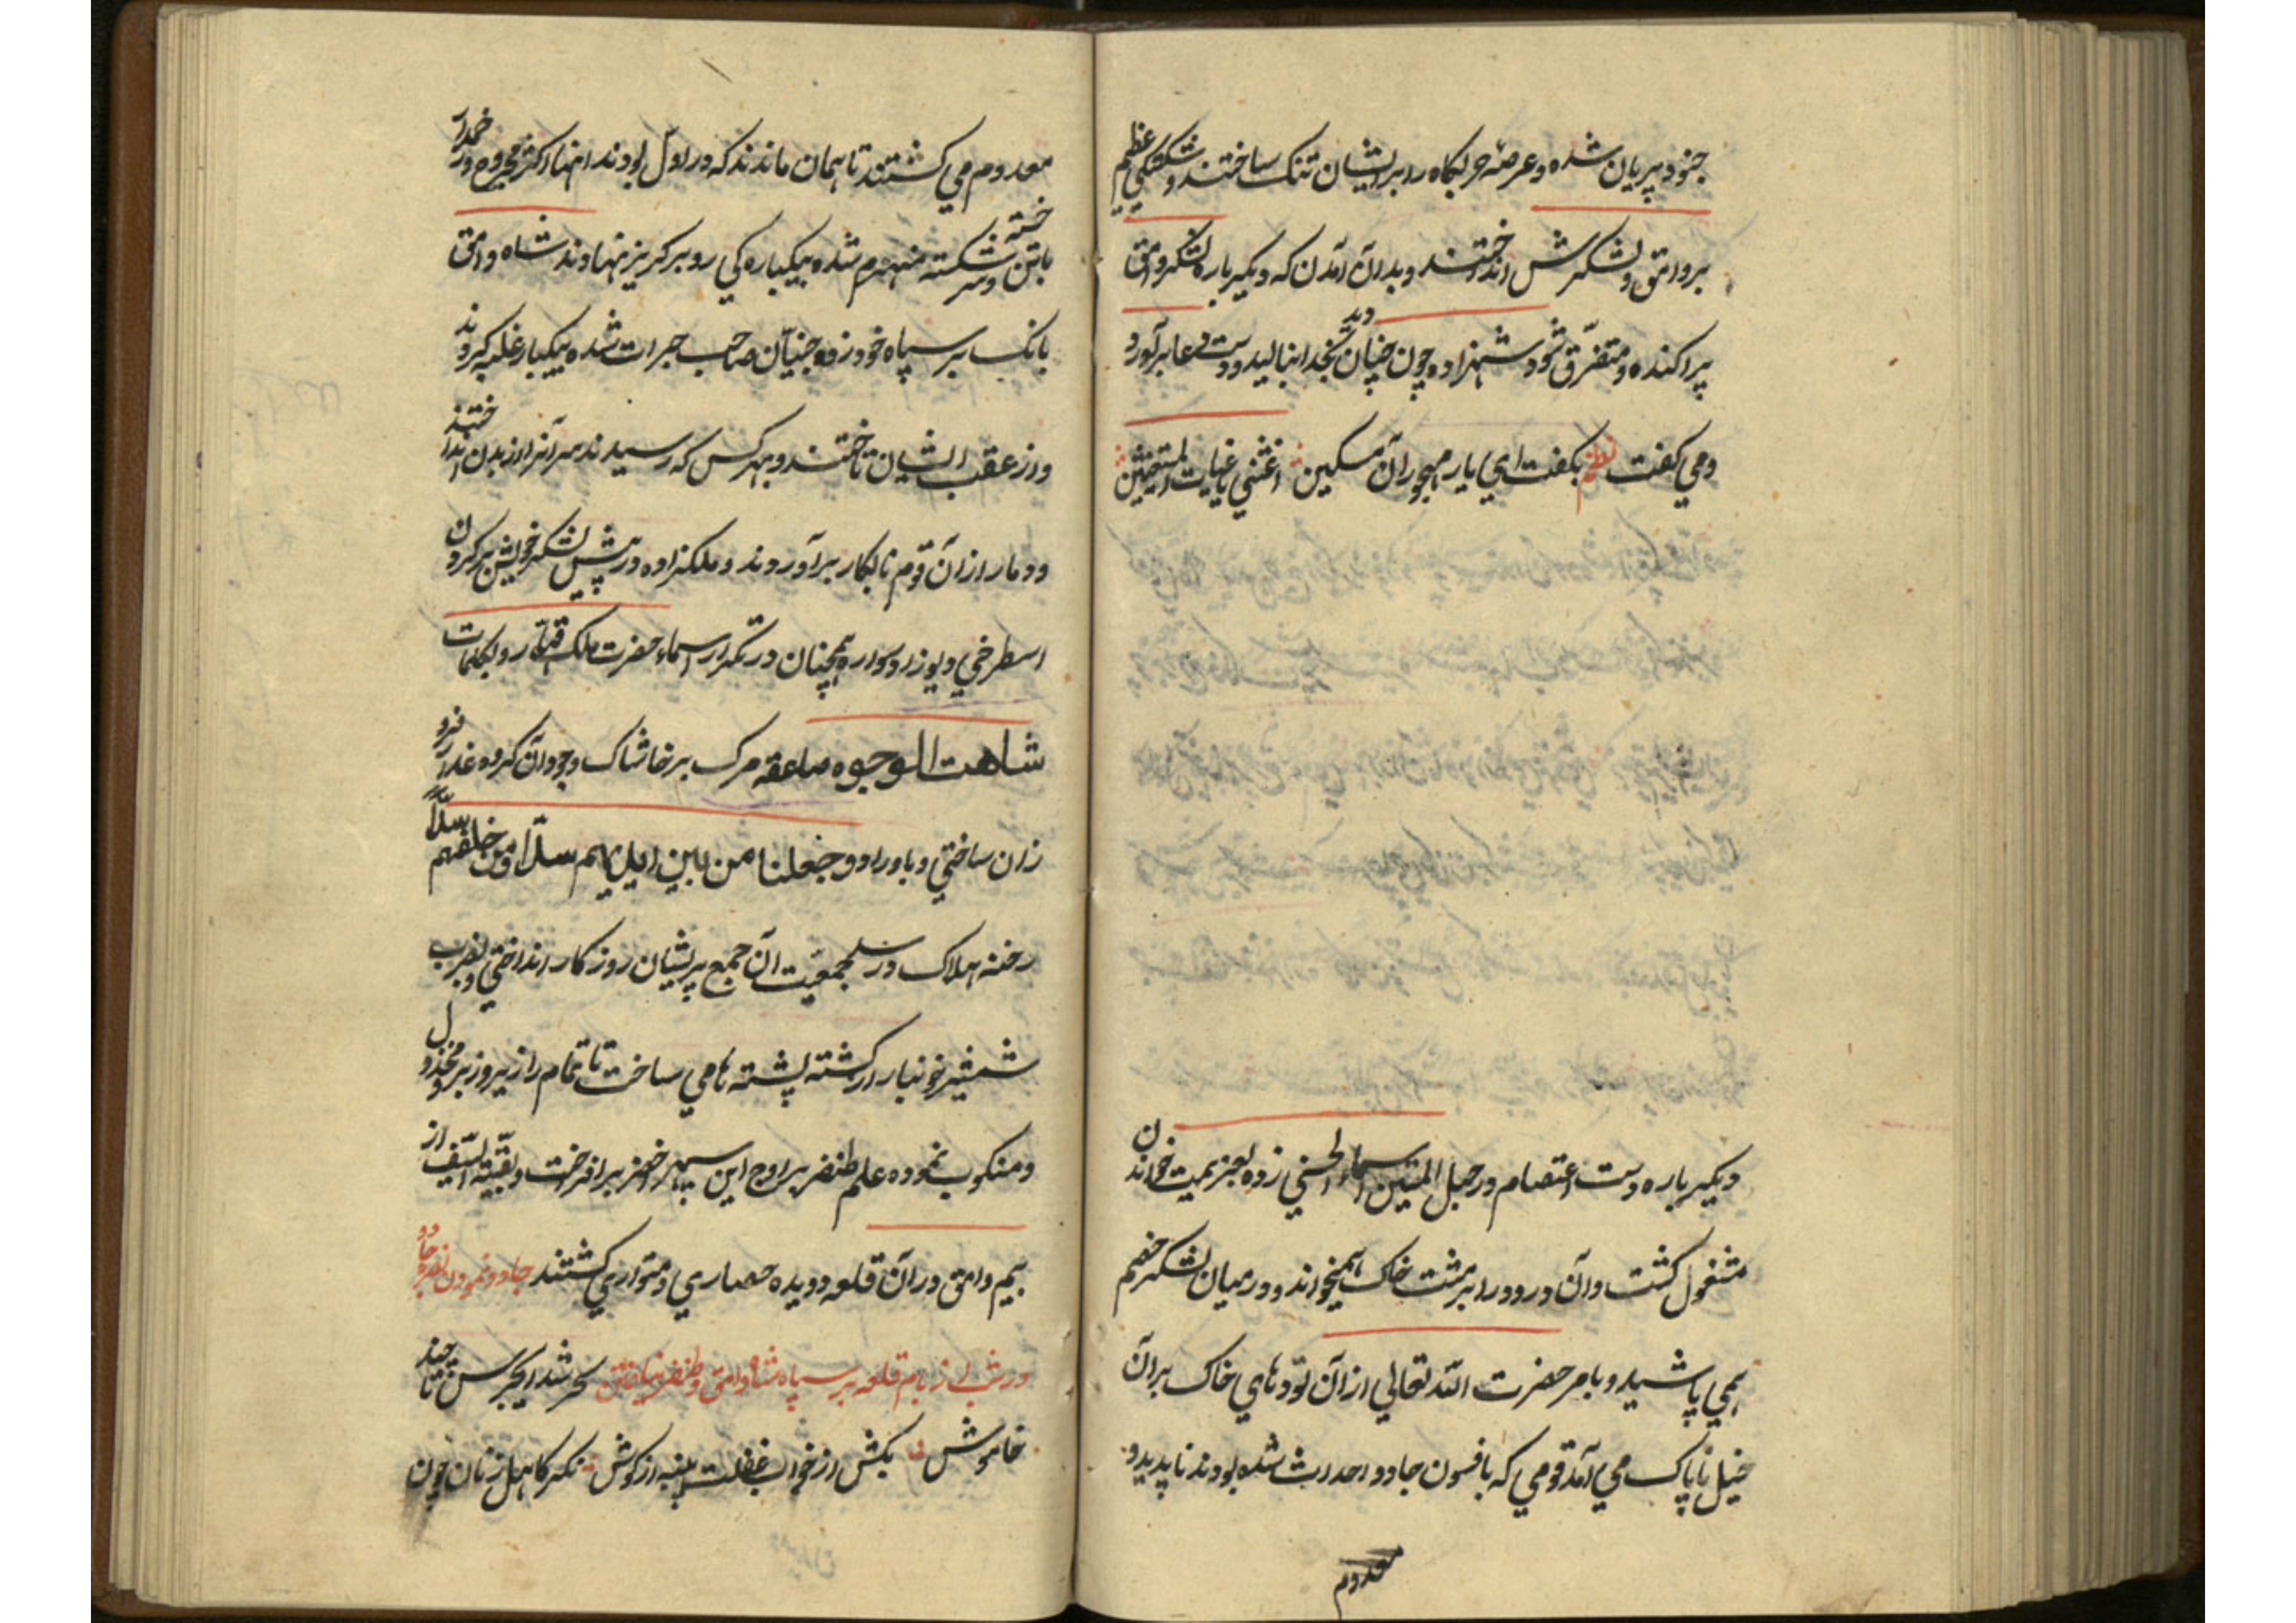 جنود پریان شده و عرصه حربگاه را بر ایشان تنک ساختند و شکستکی عظیم
بر وامق و لشکرش انداختند و بدان آمدن که دیکر باره لشکر وامق
پراکنده و متفرّق شود شهزاده چون چنان دید بخدا بنالید و دست دعا برآورد
و می کفت نظم بکفت ای یار مهجوران مسکین اغثنی یا غیاث المستغیثین
دیکر باره دست اعتصام در حبل المتین اسماء الحسنی زده بعزیمت خواندن
مشغول کشت و آن درود را بر مشت خاک همیخواند و در میان لشکر خصم
همی پاشید و بامر حضرت الله تعالی از آن تودهای خاک بر آن
خیل ناپاک می آمد قومی که بافسون جادو احداث شده بودند ناپدید و
معدوم
معدوم می کشتند تا همان ماندند که در اول بودند انها اکثر مجروح و در
با تن خسته و سر شکسته منهزم شده بیکبارکی رو بر کریز نهادند شاه وامق
بانک بر سپاه خود زده جنیّان صاحب جرات شده بیکبار غلبه کردند
و از عقب ایشان تاختند و بهر کس که رسیدند سر آنرا از بدن انداختند
و دمار از آن قوم نابکار برآوردند و ملکزاده در پیش لشکر خویش بر کردن
اسطرخی دیوزاد سواره همچنان در تکرار اسماء حضرت ملک قهّار و بکلمات
شاهت الوجوه صاعقه مرک بر خاشاک وجود آن کروه غدار فرو
زان ساختی و باوراد و جعلنا من بین ایدیهم سدّا و من خلفهم سدّا
رخنه هلاک در سد جمعیّت آن جمع پریشان روزکار انداختی و بضرب
شمشیر خونبار از کشته پشته ها می ساخت تا تمام را زیر و زبر و مخذول
و منکوب نموده علم ظفر بر اوج این سپهر اخضر برافراخت و بقیّة السّیف از
بیم وامق در آن قلعه دویده حصاری و متواری کشتند جادو نمودن نصر جادو
در شب از بام قلعه بر سپاه شاه وامق و ظفر نیافتن سحر شد ای جرس تا چند
خاموش بکش از خواب غفلت پنبه از کوش نکر کاهل زنان چون